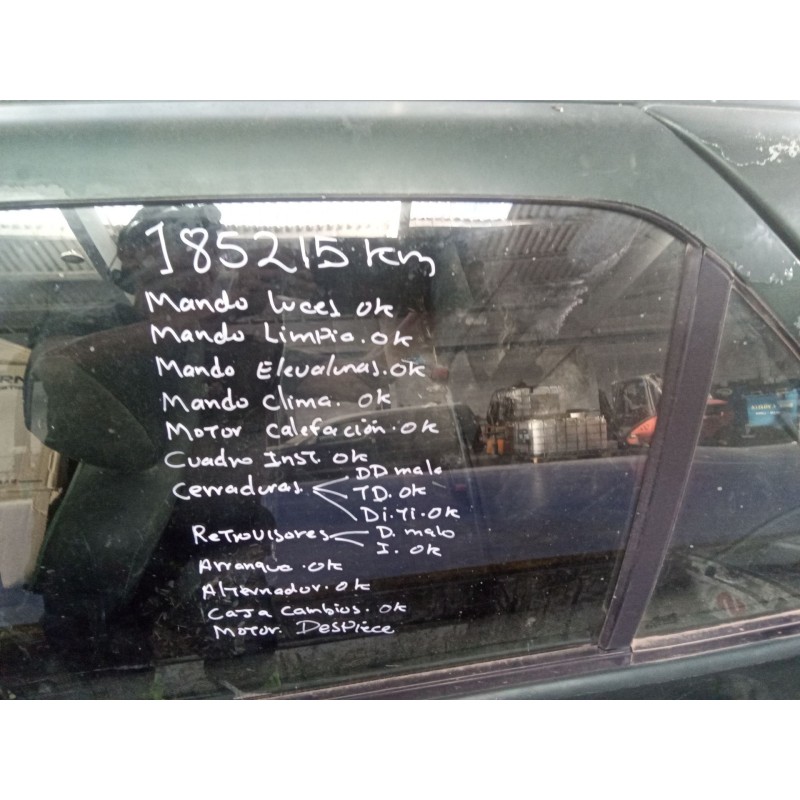 185215 km
Mando luces ok
Mando Limpia. ok
Mando Elevalunas. ok
Mando Clima. ok
Motor Calefacción. ok
Cuadro Inst. ok
Cerraduras DD malo
TD. ok
Di. Ti. ok
Retrovisores D. malo
I. ok
Arranque. ok
Alternador. ok
Caja Cambios. ok
Motor. Despiece